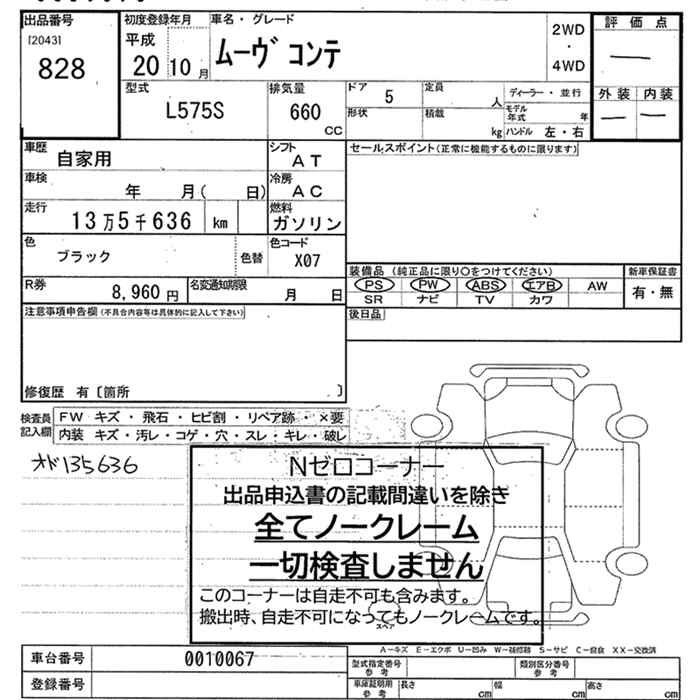 出品番号
[2043]
828
初度登録年月
平成
20 10 月
車名・グレード
ムーヴ コンテ
2WD
・
4WD
評 価 点
外 装 内 装
型式
L575S
排気量
660
CC
ドア 5
定員
人
形状
積載
kg
ディーラー・並行
モデル年式
年
ハンドル 左・右
車歴
自家用
シフト
AT
セールスポイント(正常に機能するものに限ります)
車検
年 月( 日)
冷房
AC
走行
13万5千636 km
燃料
ガソリン
色
ブラック
色替
色コード
X07
装備品 (純正品に限り〇をつけてください)
新車保証書
PS PW ABS エアB AW
有・無
SR ナビ TV カワ
R券
8,960 円
名変通知期限
月 日
後日品
注意事項申告欄(不具合内容等は具体的に記入して下さい)
修復歴 有〔箇所 〕
検査員
記入欄
FW キズ・飛石・ヒビ割・リペア跡・×要
内装 キズ・汚レ・コゲ・穴・スレ・キレ・破レ
オド135636
Nゼロコーナー
出品申込書の記載間違いを除き
全てノークレーム
一切検査しません
このコーナーは自走不可も含みます。
搬出時、自走不可になってもノークレームです。
スペア
A-キズ E-エクボ U-凹み W-補修跡 S-サビ C-腐食 XX-交換済
車台番号
0010067
型式指定番号
参考
類別区分番号
参考
登録番号
車庫証明用
参考
長さ
cm
幅
cm
高さ
cm